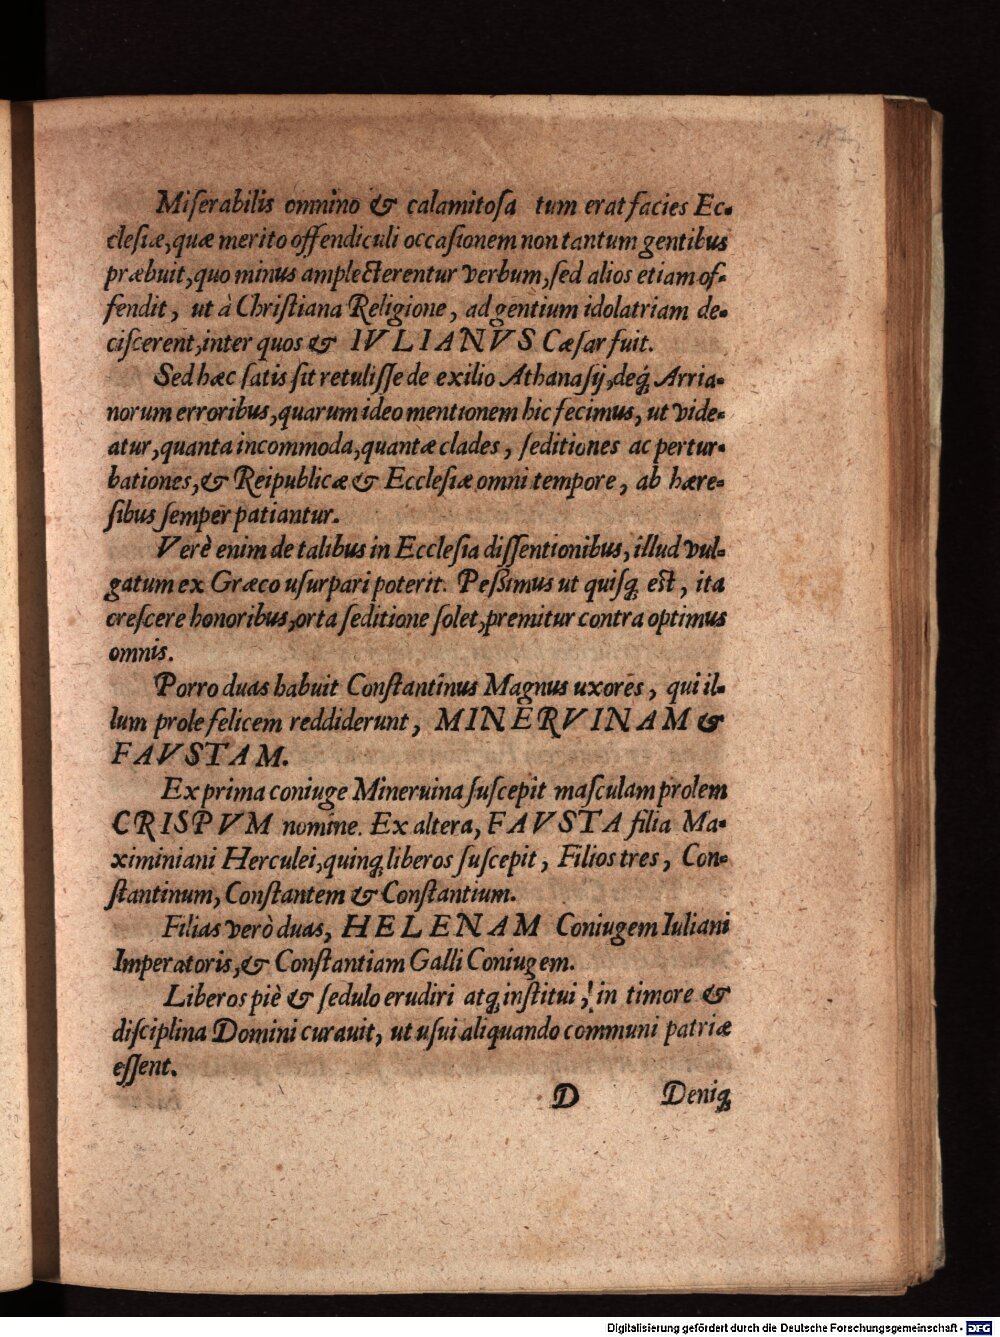 Miſerabilis omnino & calamitoſa tum erat facies Ec-
cleſiæ, quæ merito offendiculi occaſionem non tantum gentibus
præbuit, quo minus amplecterentur verbum, ſed alios etiam of-
fendit, ut à Chriſtiana Religione, ad gentium idolatriam de-
ciſcerent, inter quos & IVLIANVS Cæſar fuit.
Sed hæc ſatis ſit retuliſſe de exilio Athanaſij, deq́; Arria-
norum erroribus, quarum ideo mentionem hic fecimus, ut vide-
atur, quanta incommoda, quantæ clades, ſeditiones ac pertur-
bationes, & Reipublicæ & Eccleſiæ omni tempore, ab hære-
ſibus ſemper patiantur.
Verè enim de talibus in Eccleſia diſſentionibus, illud vul-
gatum ex Græco uſurpari poterit. Peßimus ut quiſq; est, ita
creſcere honoribus, orta ſeditione ſolet, premitur contra optimus
omnis.
Porro duas habuit Conſtantinus Magnus uxores, qui il-
lum prole felicem reddiderunt, MINERVINAM &
FAVSTAM.
Ex prima coniuge Mineruina ſuſcepit maſculam prolem
CRISPVM nomine. Ex altera, FAVSTA filia Ma-
ximiniani Herculei, quinq; liberos ſuſcepit, Filios tres, Con-
ſtantinum, Conſtantem & Conſtantium.
Filias verò duas, HELENAM Coniugem Iuliani
Imperatoris, & Conſtantiam Galli Coniugem.
Liberos piè & ſedulo erudiri atq; inſtitui, in timore &
diſciplina Domini curauit, ut uſui aliquando communi patriæ
eſſent.
D Deniq;
Digitalisierung gefördert durch die Deutsche Forschungsgemeinschaft - DFG